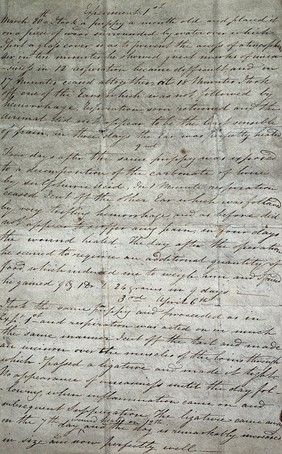 Experiment 1st
March 20th Took a puppy a month old and placed it
on a piece of wood surrounded by water over which
I put a glass cover so as to prevent the access of atmospheric
air in ten minutes he showed great marks of uneasi-
ness in 12 respiration became difficult and in
17 minutes ceased altogether at 18 Minutes I took
off one of the Ears which was not followed by
hemorrhage respiration soon returned and the
animal did not appear to be the least sensible
of pain in three days the Ear was perfectly healed
2nd
Four days after the same puppy was exposed
to a decomposition of the carbonate of lime
by sulphuric acid In 1 Minute respiration
ceased I cut off the other Ear which was followed
by very trifling hemorrhage and as before did
not appear to suffer any pain, in four days
the wound healed. The day after the operation
he seemed to require an additional quantity of
food which induced me to weigh him and I found
he gained 24 grains in 9 days
3rd April 6th
Took the same puppy and proceeded as in
Expt 1st and respiration was acted on in much
the same manner I cut off the tail and made
an incision over the muscles of the loins through
which I passed a ligature and made it tight
No appearance of uneasiness until the day fol-
lowing when inflammation came on and
subsequent suppuration the ligature came away
on the 7th day and the dog is remarkably increased
in size and now perfectly well